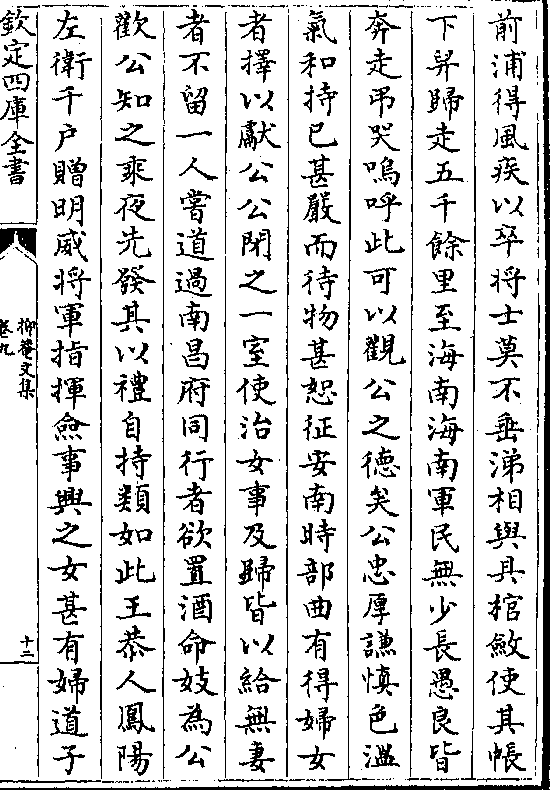 前浦得風疾以卒將士莫不垂涕相與具棺斂使其帳
下舁歸走五千餘里至海南海南軍民無少長愚良皆
奔走弔哭嗚呼此可以觀公之德矣公忠厚謙慎色溫
氣和持已甚嚴而待物甚恕征安南時部曲有得婦女
者擇以獻公公閉之一室使治女事及歸皆以給無妻
者不留一人嘗道過南昌府同行者欲置酒命妓為公
歡公知之乘夜先發其以禮自持類如此王恭人鳳陽
左衛千户贈明威將軍指揮僉事興之女甚有婦道子
欽定四庫全書
抑菴文集
卷九
十二